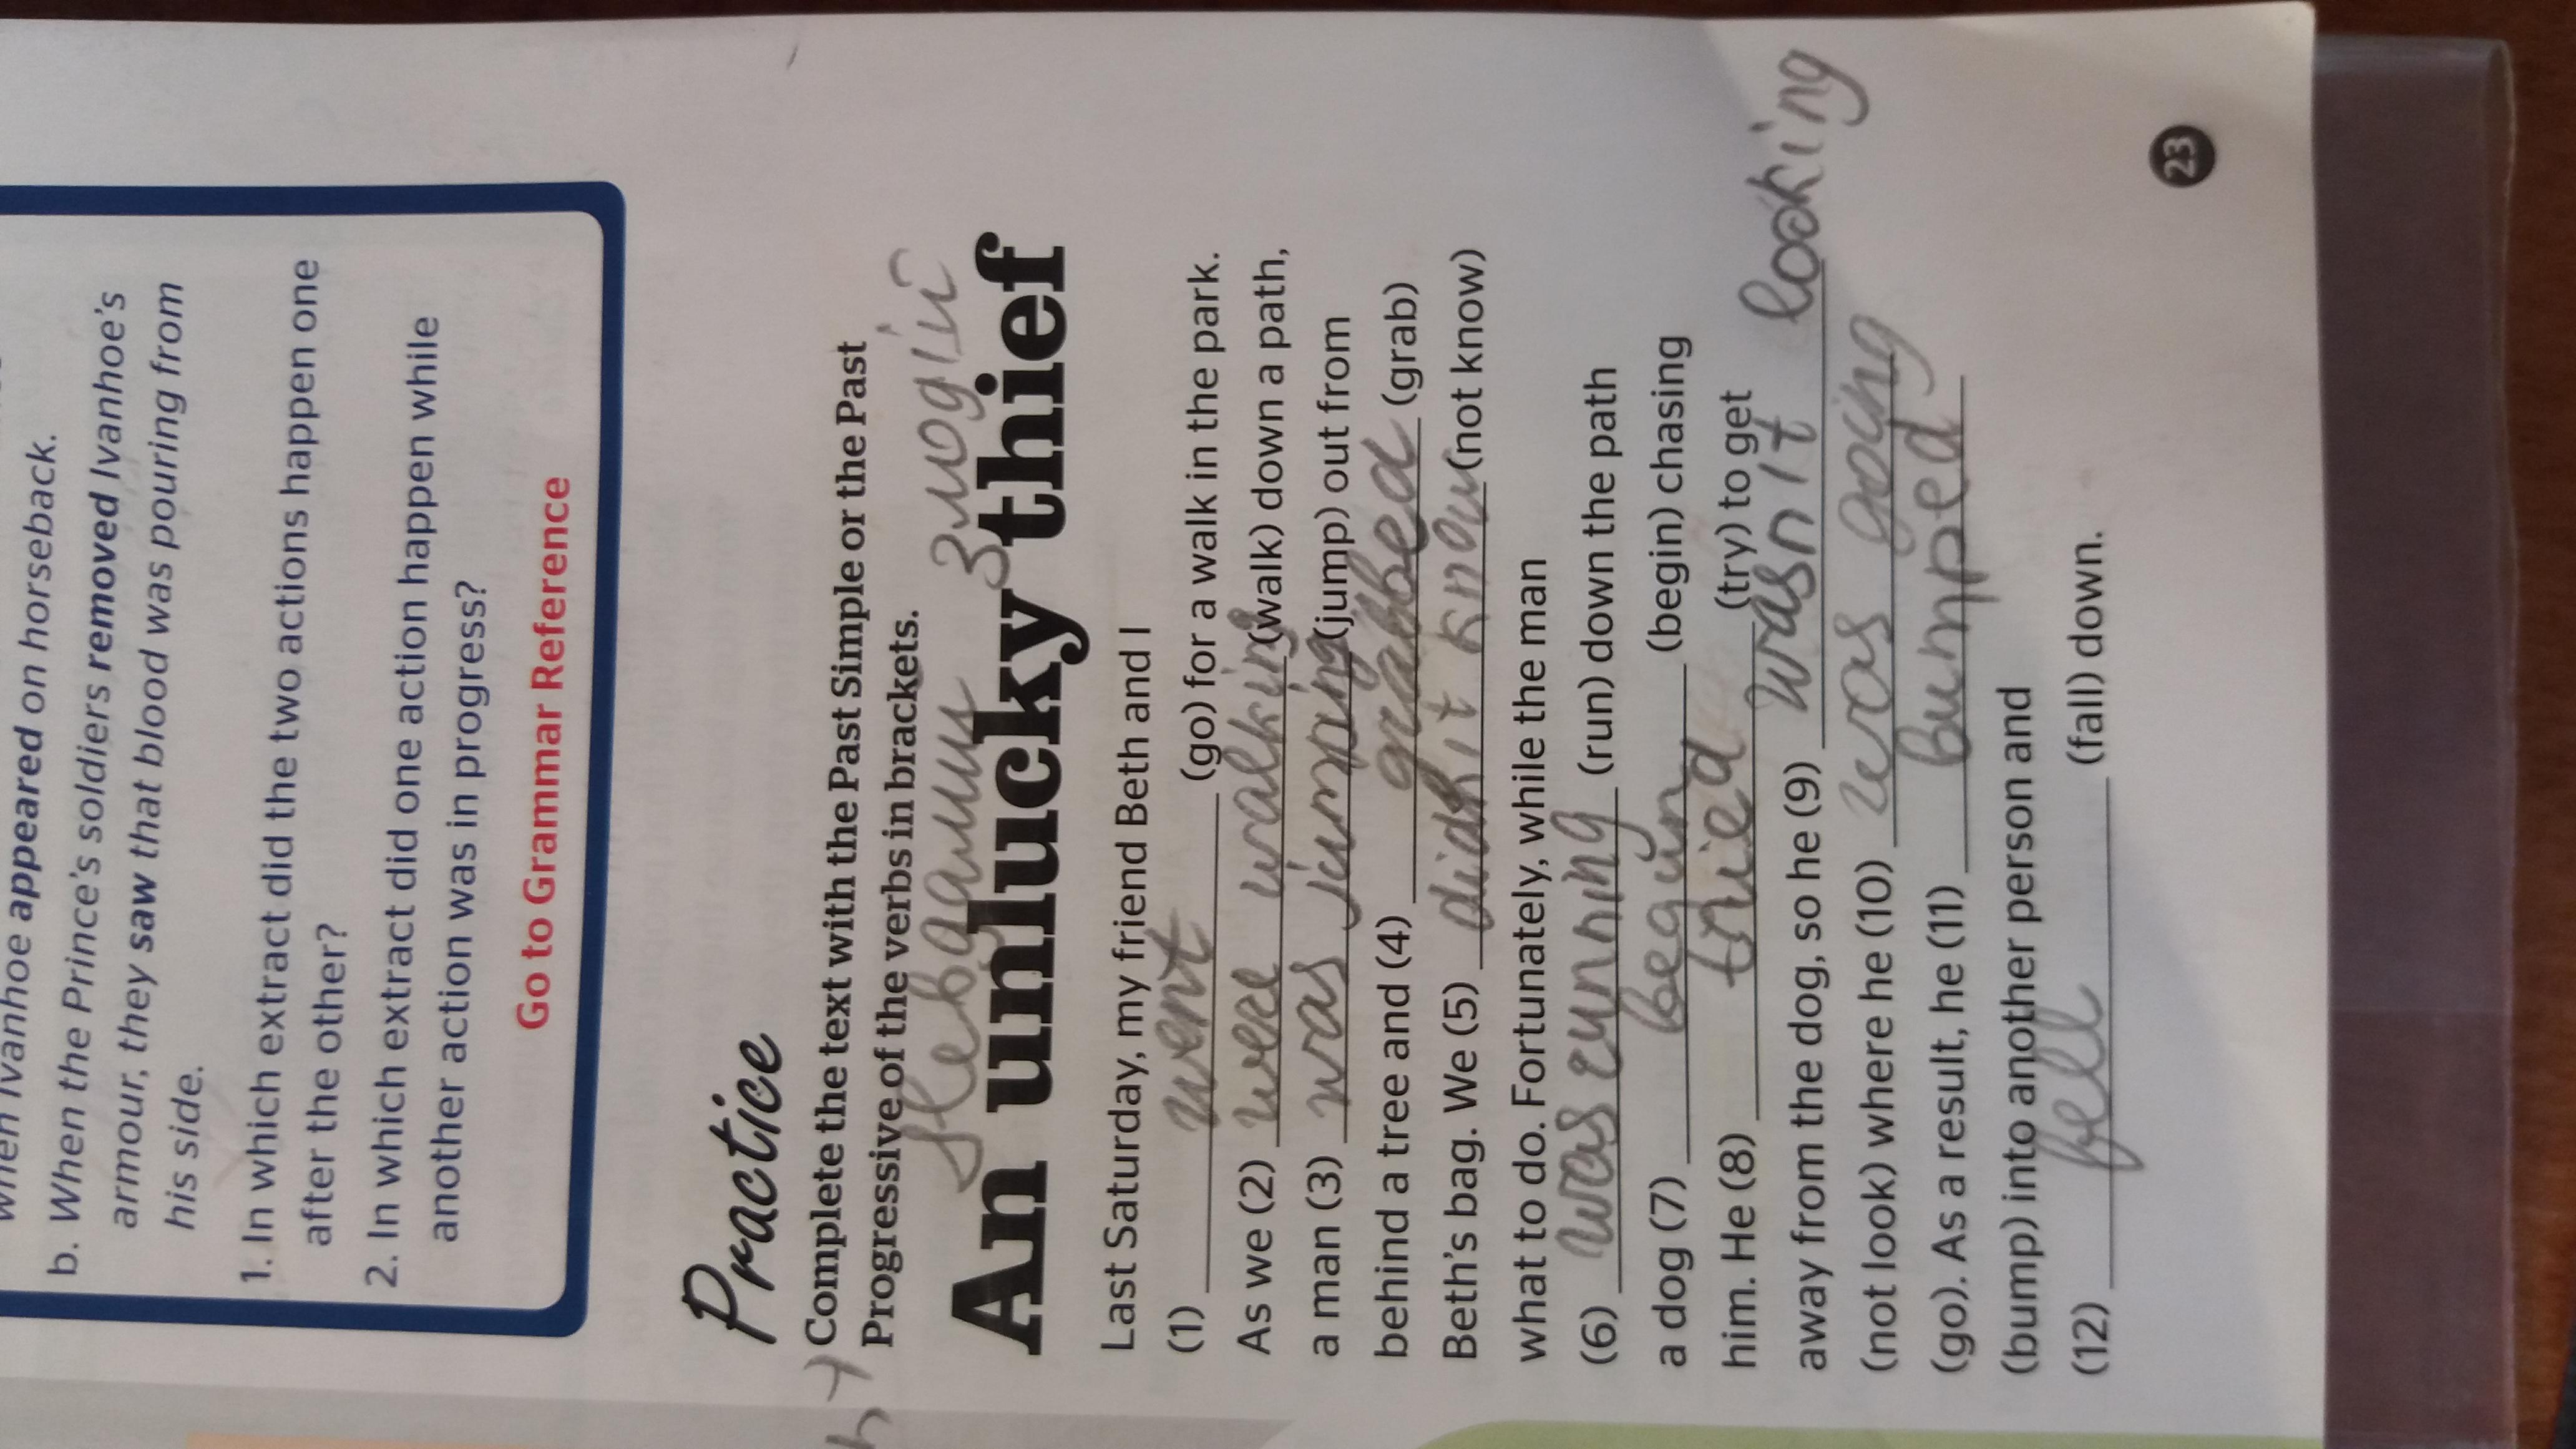 when Ivanhoe appeared on horseback.
b. When the Prince's soldiers removed Ivanhoe's
armour, they saw that blood was pouring from
his side.
1. In which extract did the two actions happen one
after the other?
2. In which extract did one action happen while
another action was in progress?
Go to Grammar Reference
Practice
Complete the text with the Past Simple or the Past
Progressive of the verbs in brackets.
An unlucky thief
Last Saturday, my friend Beth and I
(1) went (go) for a walk in the park.
As we (2) were walking (walk) down a path,
a man (3) was jumping (jump) out from
behind a tree and (4) grabbed (grab)
Beth's bag. We (5) didn't know (not know)
what to do. Fortunately, while the man
(6) was running (run) down the path
a dog (7) begun (begin) chasing
him. He (8) tried (try) to get
away from the dog, so he (9) wasn't looking
(not look) where he (10) was going
(go). As a result, he (11) bumped
(bump) into another person and
(12) fell (fall) down.
23